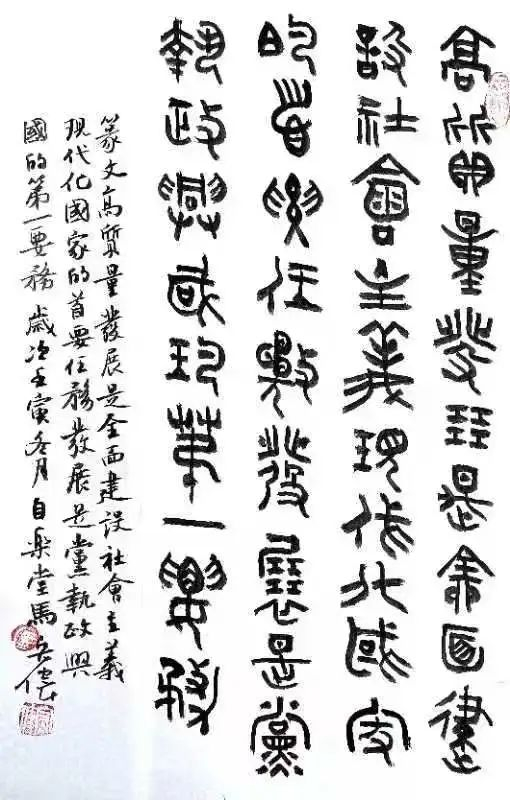 高質量發展是全面建
設社會主義現代化國家
的首要任務發展是黨
執政興國的第一要務
篆文高質量發展是全面建設社會主義
現代化國家的首要任務發展是黨執政興
國的第一要務 歲次壬寅冬月自樂堂馬